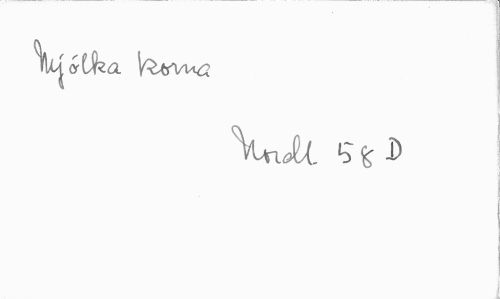 Mjólka korna
Nordl. 58 D